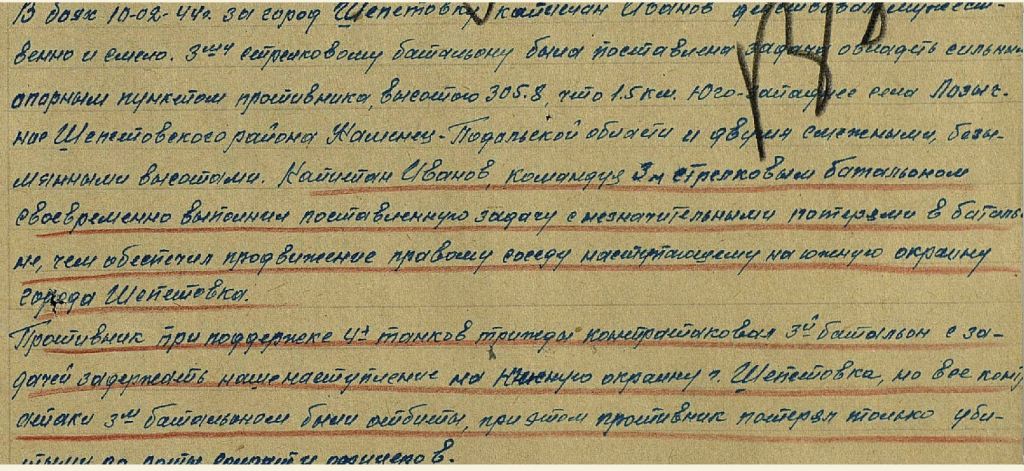 В боях 10-02-44г. за город Шепетовка, капитан Иванов действовал мужест-
венно и смело. 3ему стрелковому батальону была поставлена задача овладеть сильным
опорным пунктом противника, высотою 305.8, что 1.5 км. Юго-западнее села
ное Шепетовского района Каменец-Подольской области и двумя смежными, безы-
мянными высотами. Капитан Иванов, командуя 3м стрелковым батальоном
своевременно выполнил поставленную задачу с незначительными потерями в баталь
не, чем обеспечил продвижение правому соседу наступающему на южную окраину
города Шепетовка.
Противник при поддержке 4х танков трижды контратаковал 3й батальон с за-
дачей задержать наше наступление на Южную окраину г. Шепетовка, но все конт
атаки 3м батальоном были отбиты, при этом противник потерял только уби-
тыми до роты солдат и офицеров.